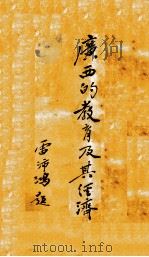 廣西的教育及其经濟
雷沛鴻題
mtoou.info